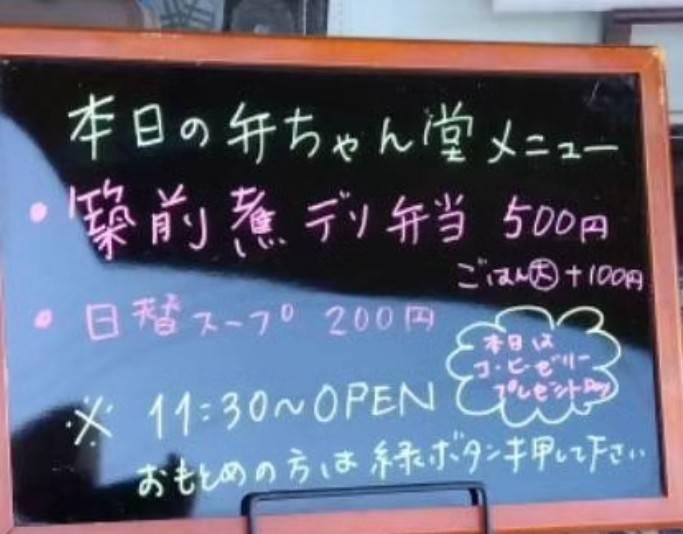 本日の弁ちゃん堂メニュー
・築前煮デリ弁当 500円
ごはん大+100円
・日替スープ 200円
本日は
コーヒーゼリー
プレゼントDay
※ 11:30~OPEN
おもとめの方は緑ボタンキ押して下さい